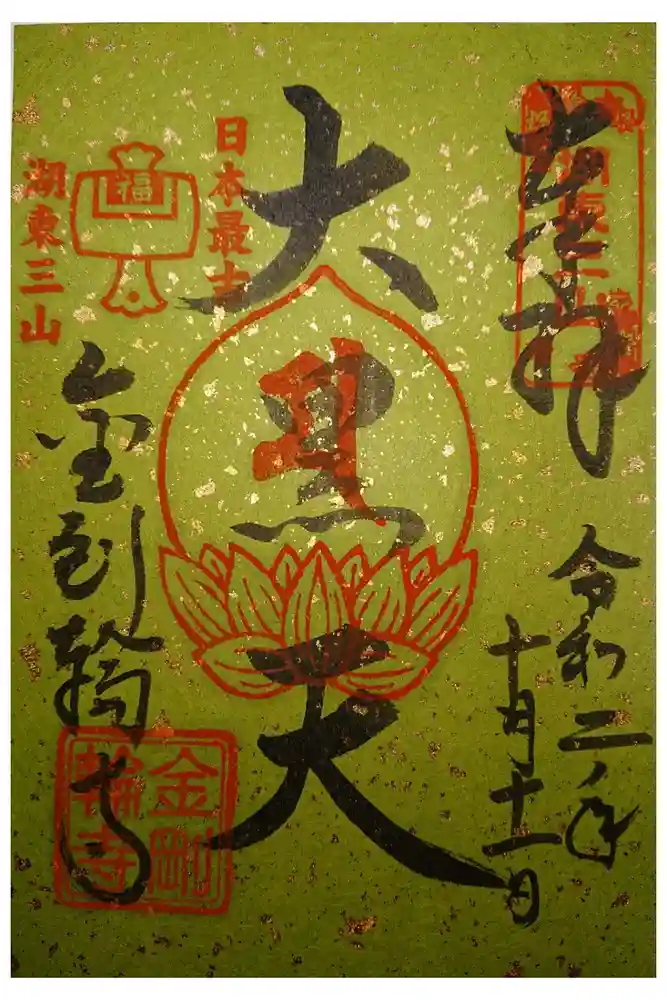 奉拝
令和二年
十月十一日
大黒天
日本最古
福
湖東三山
金剛輪寺
金剛
輪寺